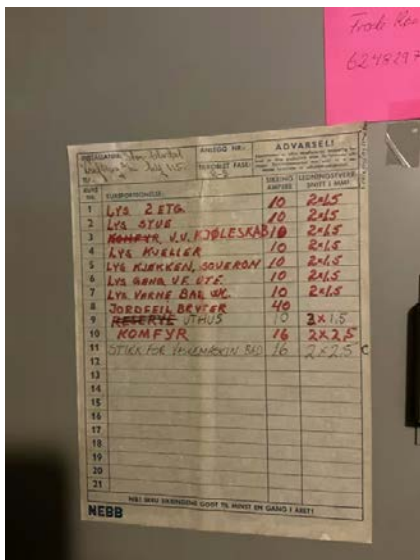 Frode
6248297
ANLEGG NR.:
ADVARSEL!
KURS NR.
KURSFORDELING:
SIKRING AMPERE
LEDNINGSTVERR-SNITT I MM²
1 LYS 2 ETG. 10 2x1.5
2 LYS STUE 10 2x1.5
3 KOMFYR, V.V. KJØLESKAB 10 2x1.5
4 LYS KJELLER 10 2x1.5
5 LYS KJØKKEN, SOVEROM 10 2x1.5
6 LYS GANG V.F. UTE. 10 2x1.5
7 LYS VARME BAD, WC. 10 2x1.5
8 JORDFEIL BRYTER 40
9 RESERVE UTHUS 10 2x1.5
10 KOMFYR 16 2x2,5
11 STIKK FOR VASKEMASKIN BAD 16 2x2,5 C
12
13
14
15
16
17
18
19
20
21
NB! SKRU SIKRINGENE GODT TIL MINST EN GANG I ÅRET!
NEBB